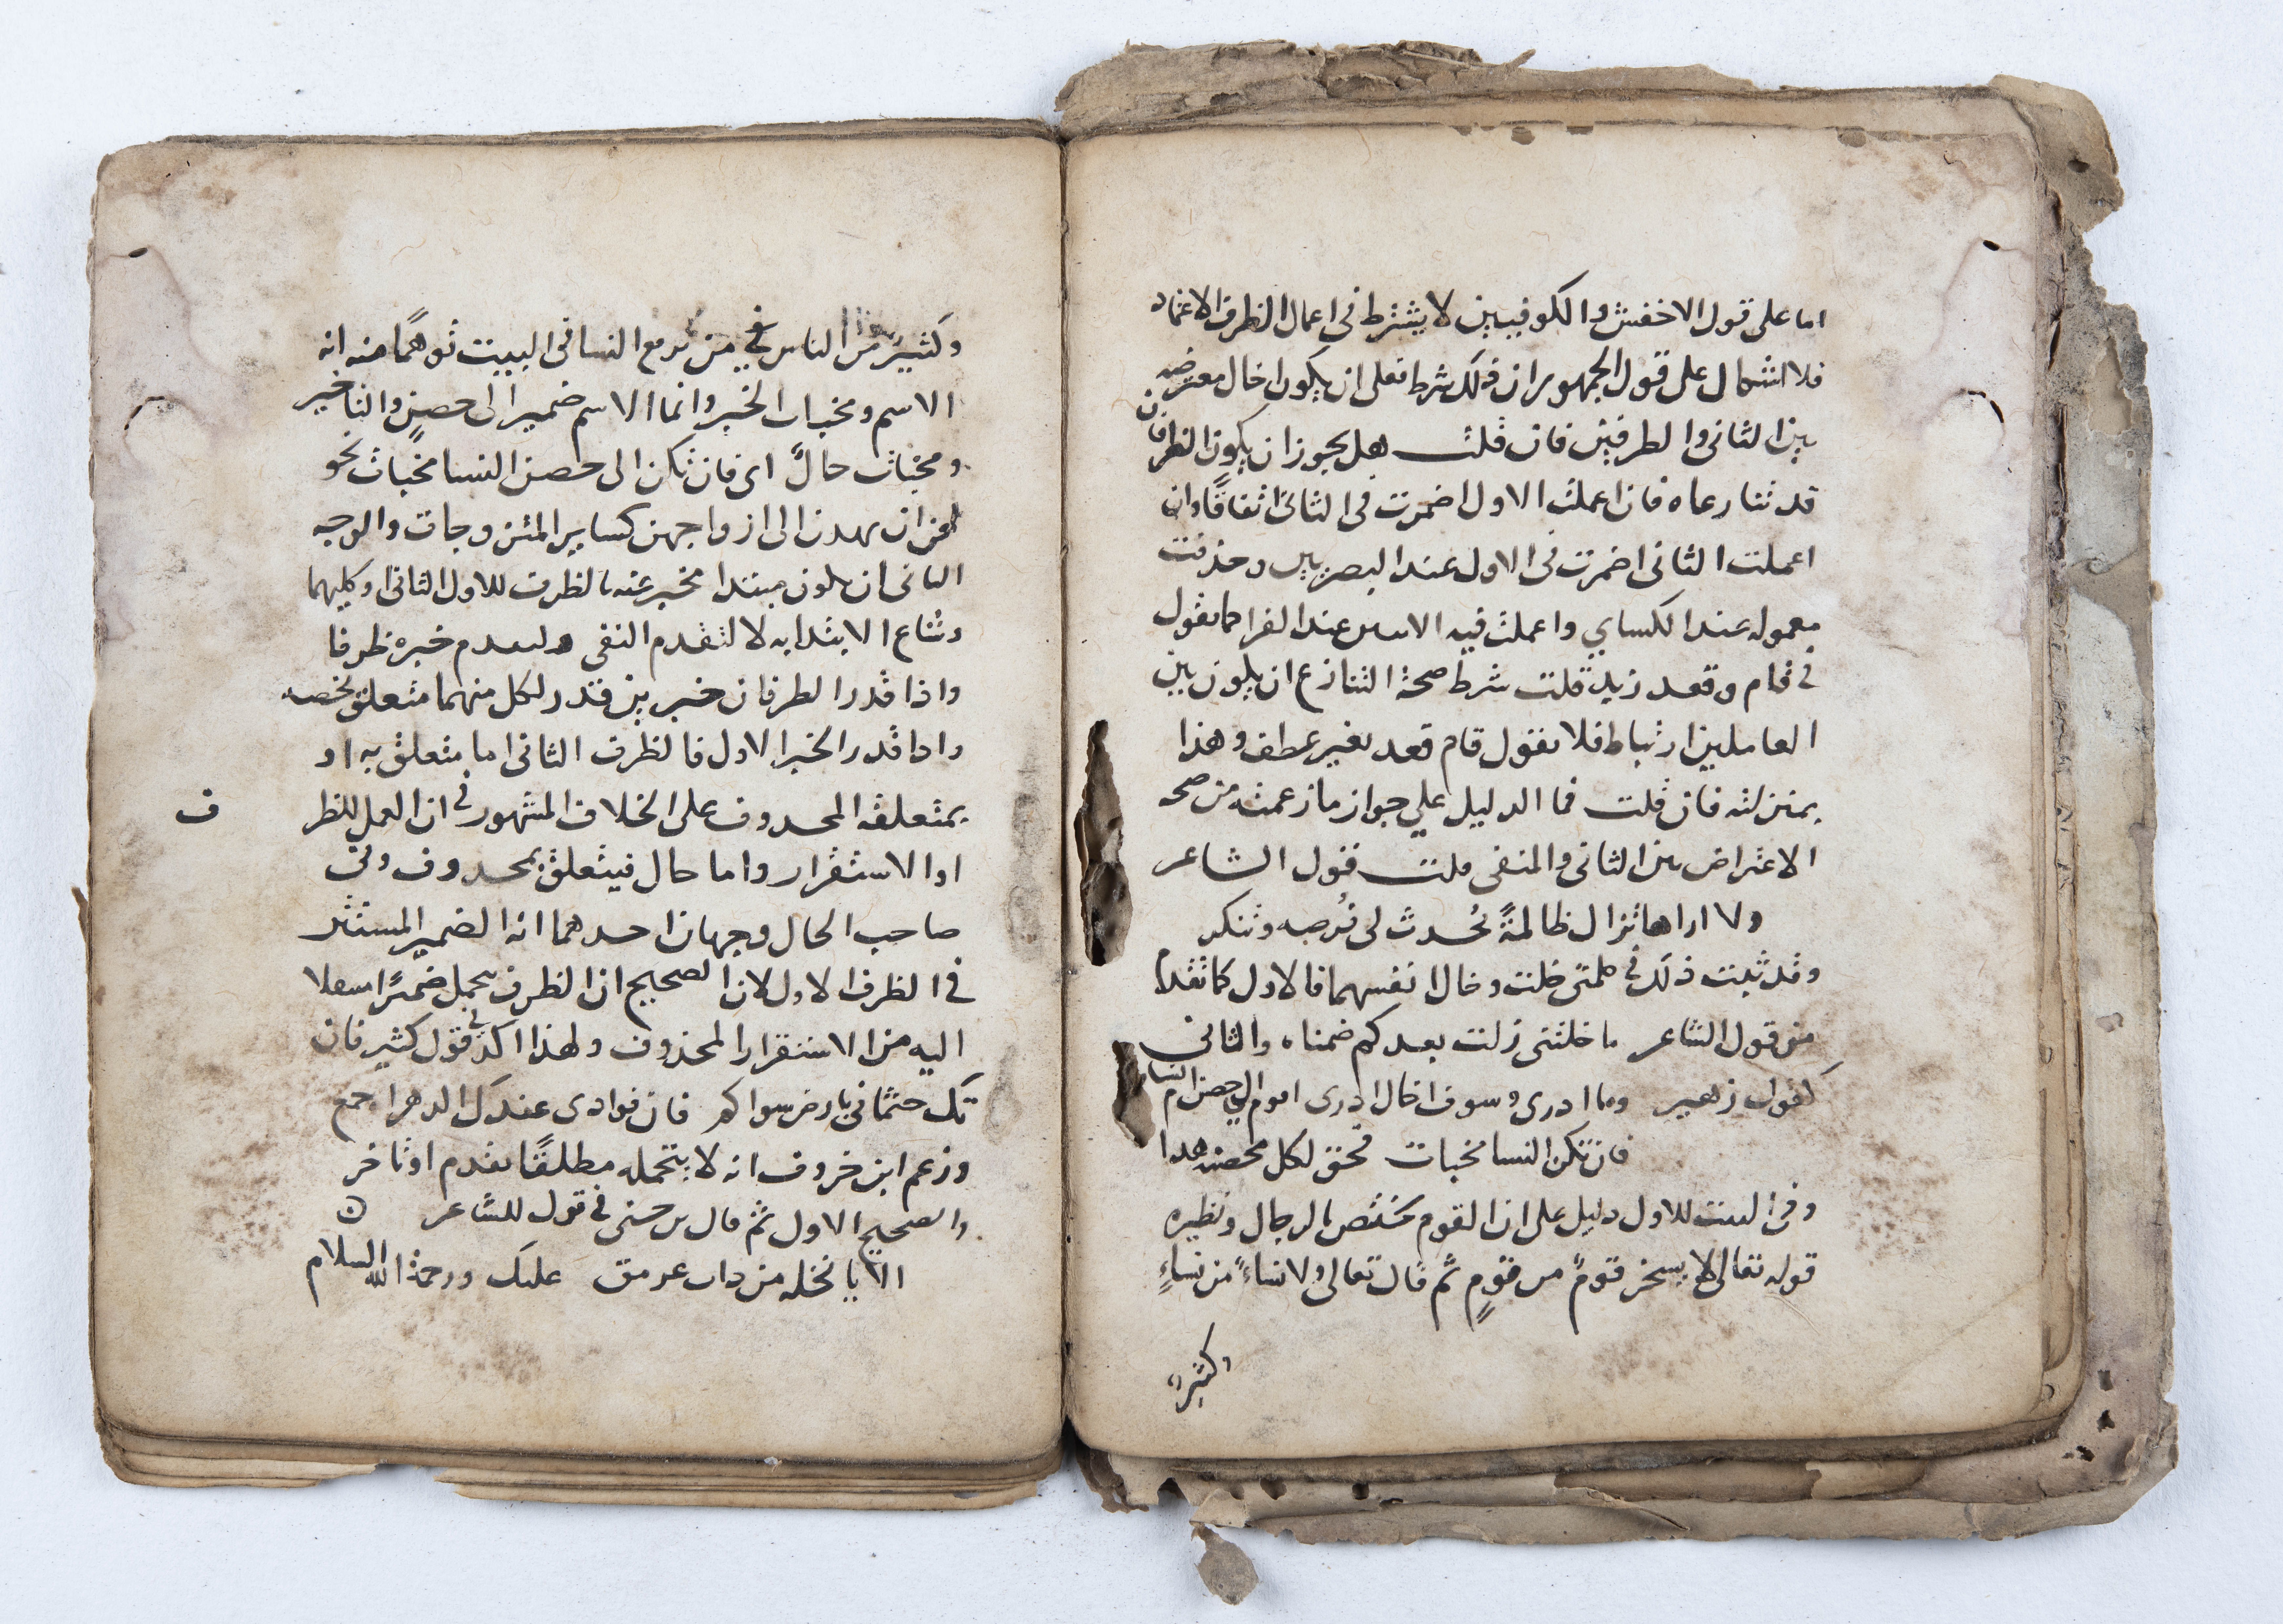 اما على قول الاخفش والكوفيين لا يشترط فى اعمال الظرف الاعتماد
فلا اشكال على قول الجمهور ان ذلك شرط فعلى ان يكون اخال معترضه
بين الثانى والظرفين فان قلت هل يجوز ان يكون الظرفان
قد تنازعاه فان اعملت الاول اضمرت فى الثانى اتفاقًا وان
اعملت الثانى اضمرت فى الاول عند البصريين وحذفت
معموله عند الكساي واعملت فيه الاسم عند الفرا كما تقول
فى قام وقعد زيد قلت شرط صحة التنازع ان يكون بين
العاملين ارتباط فلا تقول قام قعد بغير عطف وهذا
بمنزلته فان قلت فما الدليل على جواز ما زعمته من صحه
الاعتراض بين الثانى والمنفى قلت قول الشاعر
ولا اراها تزال ظالمةً تُحدث لى قرحه وتنكر
وقد ثبت ذلك فى خلت وخال انفسهما فالاول كما تقدم
من قول الشاعر ما خلتنى زلت بعدكم ضمناه والثانى
كقول زهير وما ادرى وسوف اخال ادرى اقوم ال حصن ام النسا
فان تكن النسا مخبات فحق لكل محصنه هدا
وفى البيت للاول دليل على ان القوم مختص بالرجال ونظيره
قوله تعالى لا يسخر قومٌ من قومٍ ثم قال تعالى ولا نساءٌ من نساءٍ
وكثير
وكثيرٌ من الناس فى من يرفع النسا فى البيت توهمًا منه انه
الاسم ومخبات الخبر وانما الاسم ضمير ال حصنٍ والنسا خبر
ومخبات حالٌ اى فان تكن ال حصن النسا مخباتٍ نحو
لهن ان يهدن الى ازواجهن كساير المتزوجات والوجه
الثانى ان يكون مبتدا مخبر عنه بالظرف للاول الثانى او كليهما
وشاع الابتدا به لا لتقدم النفى ولتقدم خبره ظرفا
واذا قدر الظرفان خبرين قدر لكل منهما متعلق يخصه
واذا قدر الخبر الاول فالظرف الثانى اما متعلق به او
بمتعلقه المحدوف على الخلاف المشهور فى ان العمل للظر
ف
او الاستقرار واما حال فيتعلق بمحدوف وفى
صاحب الحال وجهان احدهما انه الضمير المستتر
فى الظرف الاول لان الصحيح ان الظرف يتحمل ضميرًا منتقلا
اليه من الاستقرار المحذوف ولهذا اكد فى قول كثير فان
تك جثمانى بارض سواكم فان فوادى عندك الدهر اجمع
وزعم ابن خروف انه لا يتحمله مطلقًا تقدم او تاخر
والصحيح الاول ثم قال بن جنى فى قول للشاعر
الا يا نخله من ذات عرق عليك ورحمة الله السلام